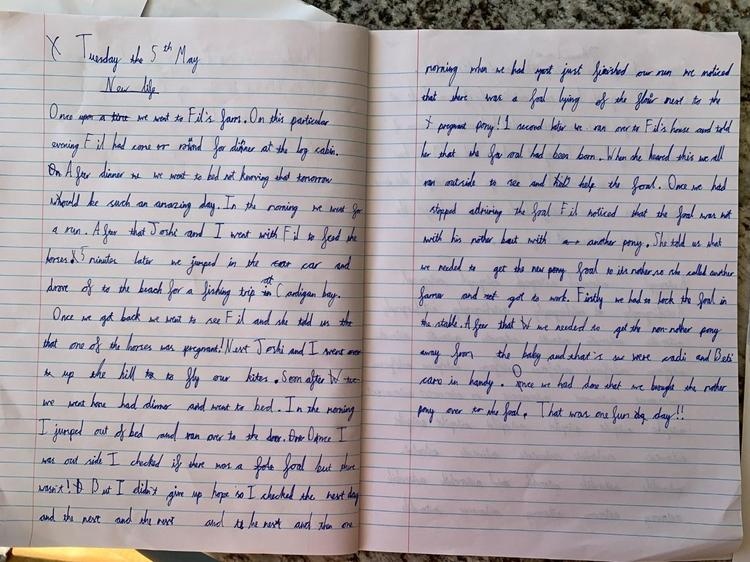 X Tuesday the 5th May
New life
Once upon a time we went to Fil's farm. On this particular
evening Fil had come or round for dinner at the log cabin.
On After dinner we we went to bed not knowing that tomorrow
whould be such an amazing day. In the morning we went for
a run. After that Joshi and I went with Fil to feed the
horses. 5 minutes later we jumped in the car and
drove of to the beach for a fishing trip at Cardigan bay.
Once we got back we went to see Fil and she told us the
that one of the horses was pregnant! Next Joshi and I went over
up the hill to to fly our kites. Soon after W
we went home had dinner and went to bed. In the morning
I jumped out of bed and ran over to the door. Once I
was out side I checked if there was a foal but there
wasn't! But I didn't give up hope so I checked the next day
and the next and the next and to the next and then one
morning when we had just finished our run we noticed
that there was a foal lying of the floor next to the
pregnant pony! 1 second later we ran over to Fil's house and told
her that the foal had been born. When she heard this we all
ran outside to see and help the foal. Once we had
stopped admiring the foal Fil noticed that the foal was not
with his mother but with another pony. She told us that
we needed to get the new pony foal to its mother so she called another
farmer and got to work. Firstly we had to lock the foal in
the stable. After that W we needed to get the non-mother pony
away from the baby and that's were and
came in handy. Once we had done that we bought the mother
pony over to the foal. That was one fun day!!